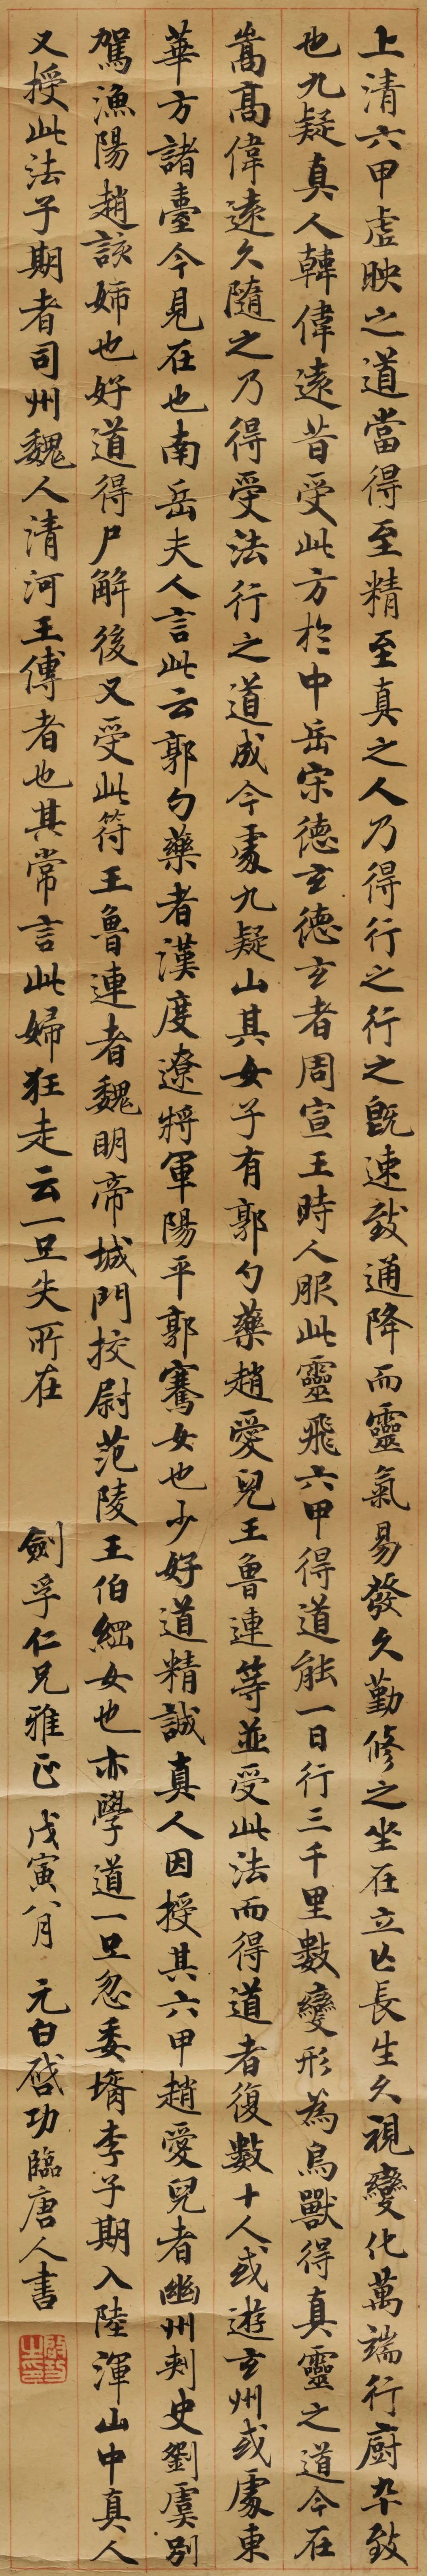 上清六甲虛映之道當得至精至真之人乃得行之行之既速致通降而靈氣易發久勤修之坐在立亡長生久視變化萬端行廚卒致
也九疑真人韓偉遠昔受此方於中岳宋德玄德玄者周宣王時人服此靈飛六甲得道能一日行三千里數變形為鳥獸得真靈之道今在
嵩高偉遠久隨之乃得受法行之道成今處九疑山其女子有郭勺藥趙愛兒王魯連等並受此法而得道者復數十人或遊玄州或處東
華方諸臺今見在也南岳夫人言此云郭勺藥者漢度遼將軍陽平郭騫女也少好道精誠真人因授其六甲趙愛兒者幽州刾史劉虞別
駕漁陽趙該姊也好道得尸解後又受此符王魯連者魏明帝城門挍尉范陵王伯綱女也亦學道一旦忽委壻李子期入陸渾山中真人
又授此法子期者司州魏人清河王傅者也其常言此婦狂走云一旦失所在 劍孚仁兄雅正 戊寅八月 元白啓功臨唐人書